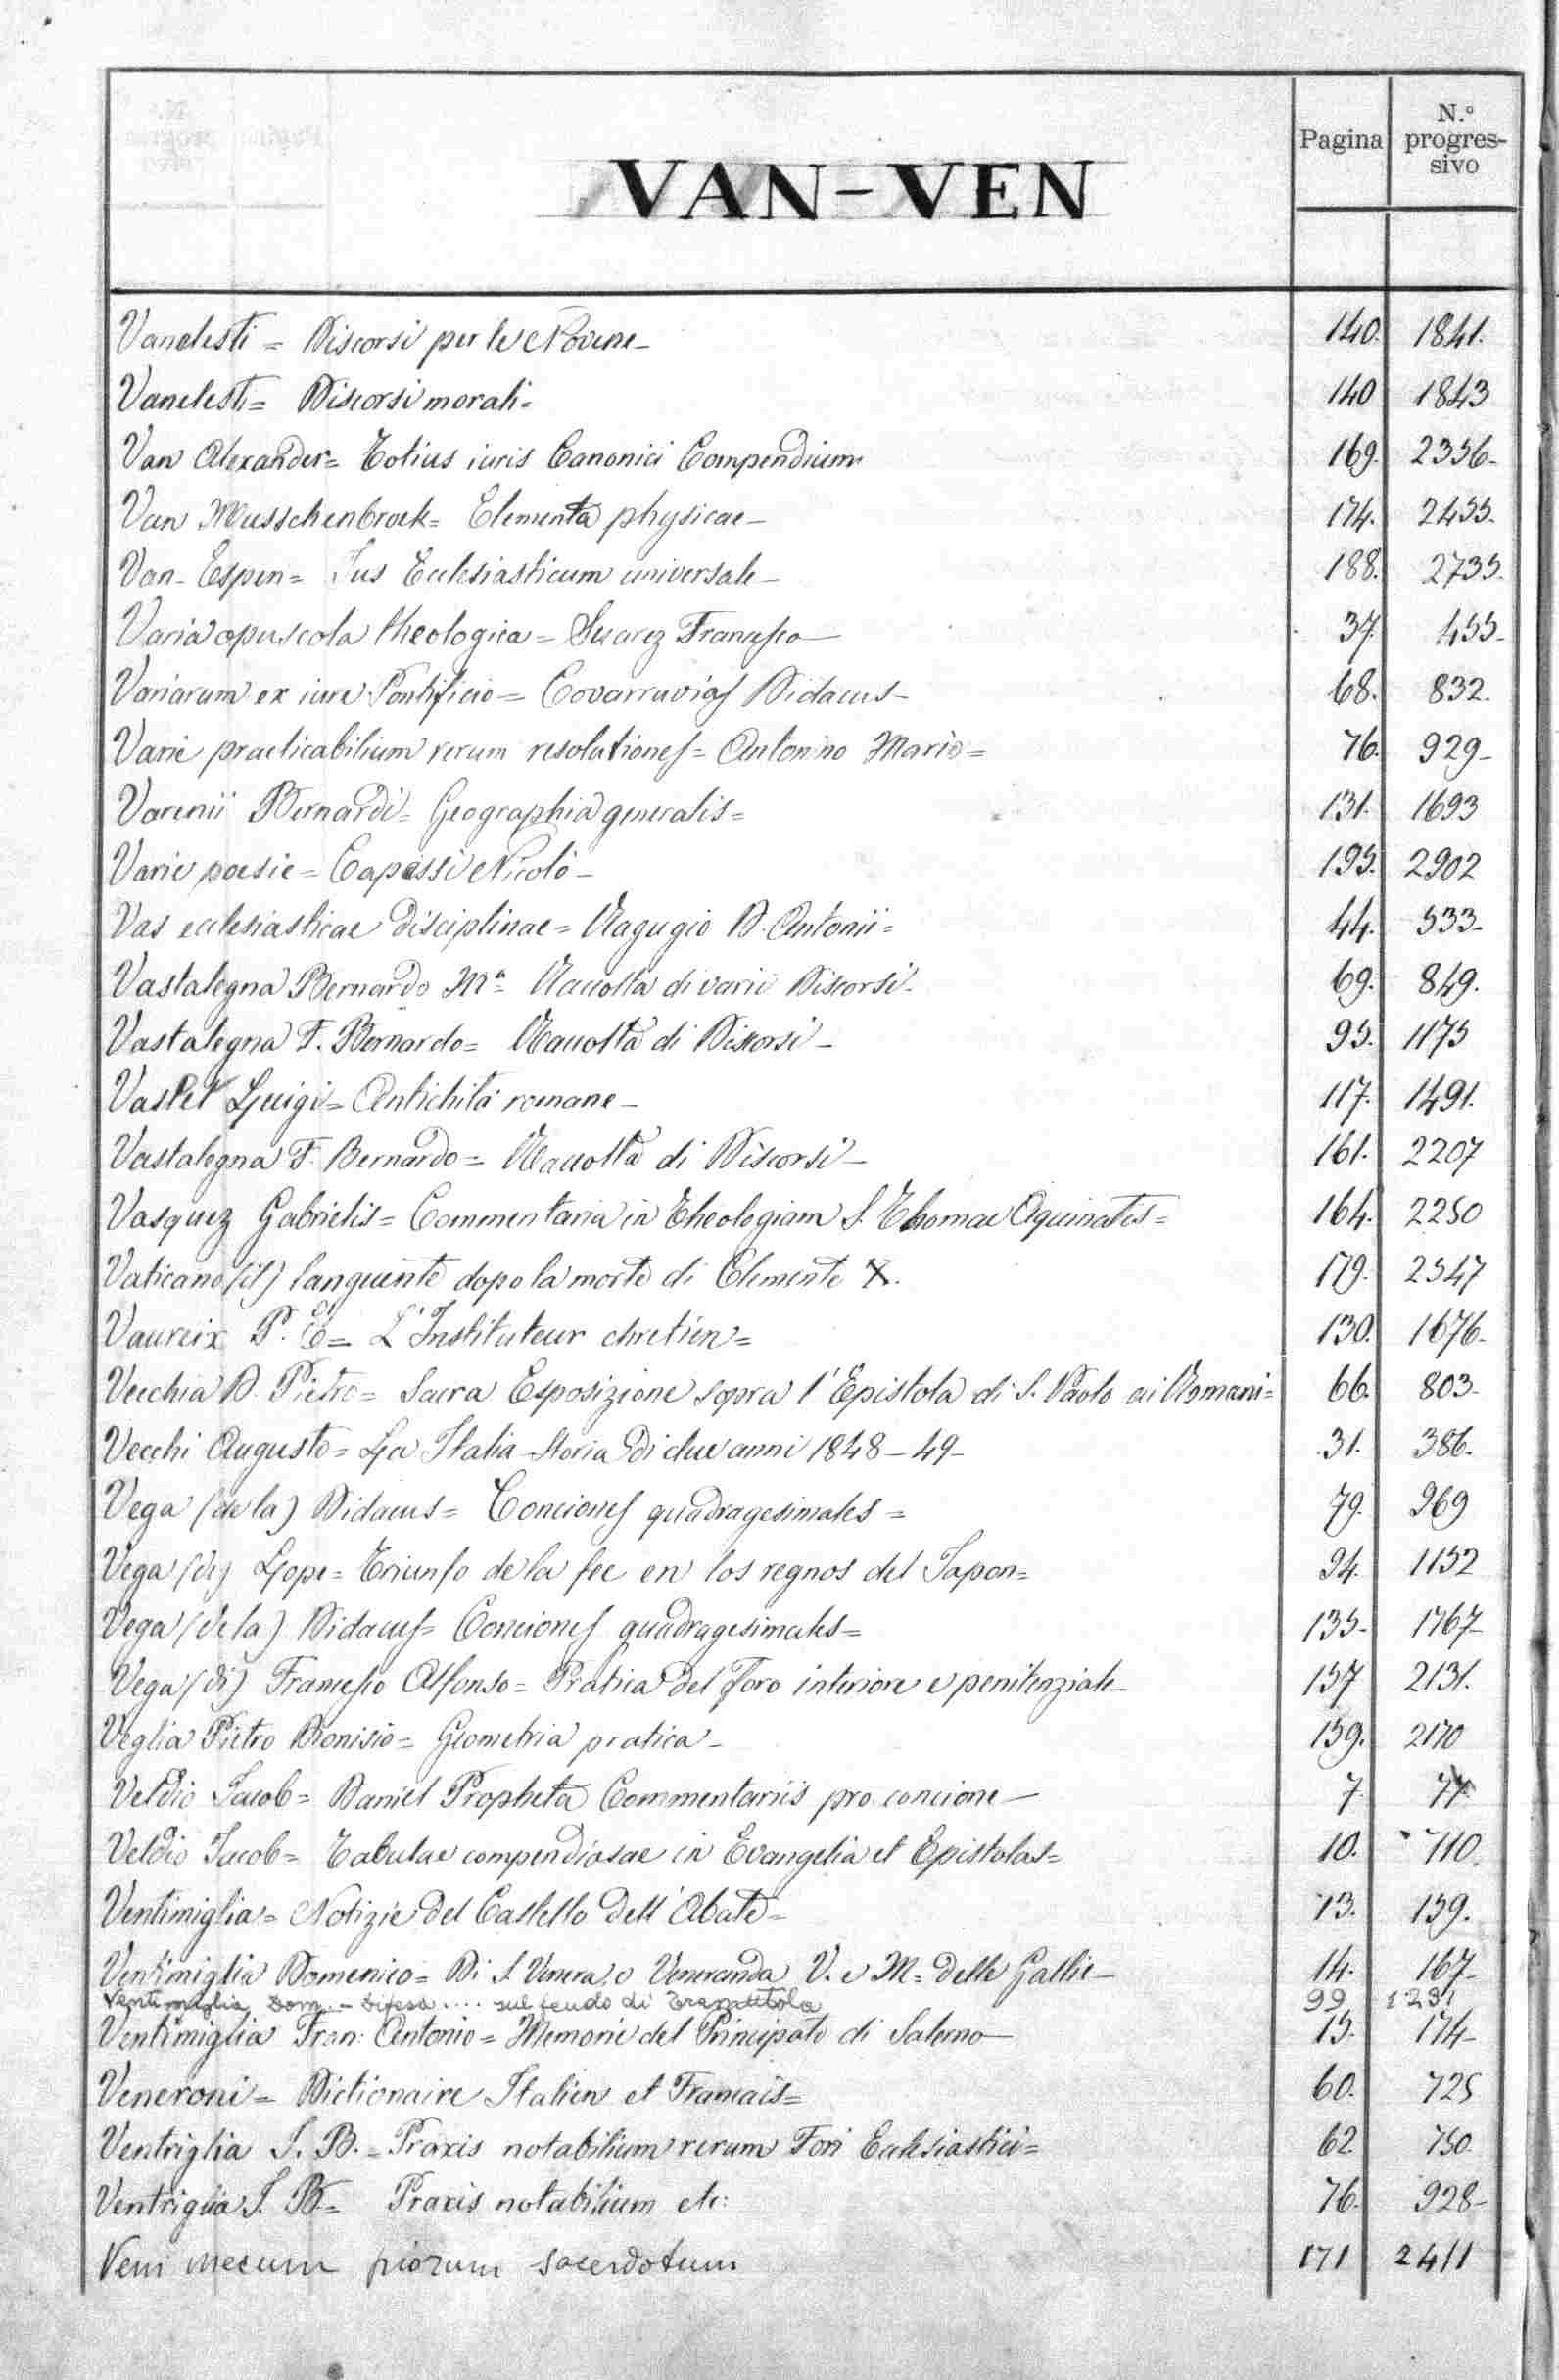 Pagina N.º progres-sivo
VAN-VEN
Vanalesti = Discorsi per le Novene - 140. 1841.
Vanalesti = Discorsi morali - 140 1843
Van Alexander = Totius iuris Canonici Compendium 169. 2356-
Van Musschenbroek = Elementa physicae - 174. 2455-
Van-Espen = Jus Ecclesiasticum universale - 188. 2735.
Varia opuscola theologica = Suarez Francesco - 37. 455-
Variarum ex iure Pontificio = Covarruvias Didacus - 68. 832.
Varie practicabilium rerum resolutiones = Antonino Mario = 76. 929-
Varenii Bernardi = Geographia generalis = 131. 1693
Varie poesie = Capassi Nicolò - 195. 2902
Vas ecclesiasticae disciplinae = Ragugio D. Antonii = 44. 533-
Vastalegna Bernardo Mª = Raccolta di varii Discorsi - 69. 849.
Vastalegna F. Bernardo = Raccolta di Discorsi - 95. 1175
Vaslet Luigi = Antichità romane - 117. 1491.
Vastalegna F. Bernardo = Raccolta di Discorsi - 161. 2207
Vasquez Gabrielis = Commentaria in Theologiam S. Thomae Aquinatis = 164. 2250
Vaticano (il) languente dopo la morte di Clemente X. 179. 2547
Vaureix P. C = L'Instituteur chretien = 130. 1676-
Vecchia D. Pietro = Sacra Esposizione sopra l'Epistola di S. Paolo ai Romani = 66. 803-
Vecchi Augusto = La Italia Storia di due anni 1848-49- 31. 386.
Vega (de la) Didacus = Conciones quadragesimales = 79. 969
Vega (de) Lope = Triunfo de la fee en los regnos del Japon = 94. 1152
Vega (de la) Didacus = Conciones quadragesimales = 135- 1767-
Vega (di) Francesco Alfonso = Pratica del Foro interiore e penitenziale - 157 2131.
Veglia Pietro Dionisio = Geometria pratica - 159. 2170
Veldio Jacob = Daniel Propheta Commentariis pro concione - 7. 77
Veldio Jacob = Tabulae compendiosae in Evangelia et Epistolas = 10. 110.
Ventimiglia = Notizie del Castello dell'Abate - 13. 159.
Ventimiglia Domenico = Di S. Venera, o Veneranda V. e M. = delle Gallie - 14. 167-
Ventimiglia Dom. - Difesa .... sul feudo di Tramutola 99 1231
Ventimiglia Fran: Antonio = Memorie del Principato di Salerno - 15. 174-
Veneroni = Dictionaire Italien et Francais = 60. 725
Ventriglia J. B. = Praxis notabilium rerum Fori Ecclesiastici = 62 750
Ventriglia J. B. = Praxis notabilium etc: 76. 928-
Veni mecum piorum sacerdotum 171 2411